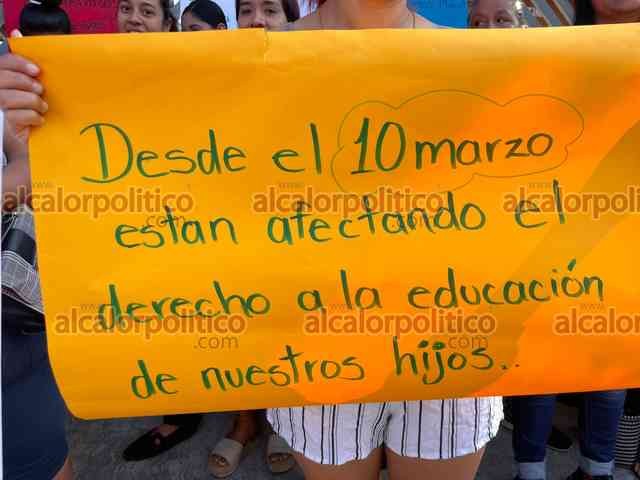 Desde el 10 marzo
estan afectando el
derecho a la educación
de nuestros hijos..
www.
alcalorpolitico
.com
www.
alcalorpolitico
.com
www.
alcalorpolitico
www.
alcalorpolitico
.com
www.
alcalorpolitico
.com
www.
alcalor